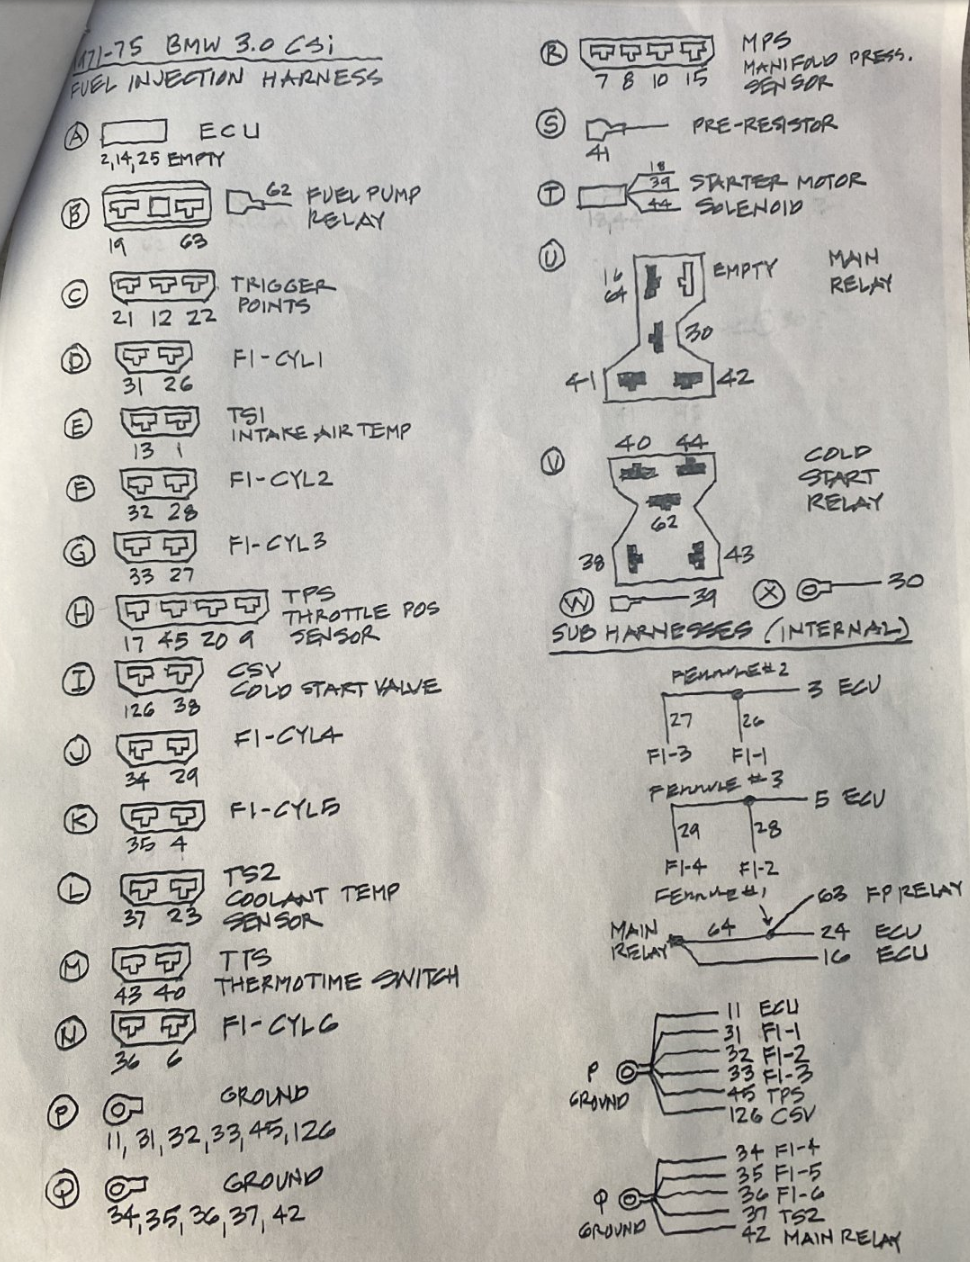 1971-75 BMW 3.0 CSi
FUEL INJECTION HARNESS
A ECU
2,14,25 EMPTY
B 62 FUEL PUMP
RELAY
19 63
C TRIGGER
POINTS
21 12 22
D FI-CYL1
31 26
E TS1
INTAKE AIR TEMP
13 1
F FI-CYL2
32 28
G FI-CYL3
33 27
H TPS
THROTTLE POS
SENSOR
17 45 20 9
I CSV
COLD START VALVE
126 38
J FI-CYL4
34 29
K FI-CYL5
35 4
L TS2
COOLANT TEMP
SENSOR
37 23
M TTS
THERMOTIME SWITCH
43 40
N FI-CYL6
36 6
P GROUND
11, 31, 32, 33, 45, 126
Q GROUND
34, 35, 36, 37, 42
R MPS
MANIFOLD PRESS.
SENSOR
7 8 10 15
S PRE-RESISTOR
41
T 18
39 STARTER MOTOR
44 SOLENOID
U MAIN
RELAY
16 EMPTY
64
30
41 42
V 40 44 COLD
START
RELAY
62
38 43
W 39 X 30
SUB HARNESSES (INTERNAL)
FERRULE #2
3 ECU
27 26
FI-3 FI-1
FERRULE #3
5 ECU
29 28
FI-4 FI-2
FERRULE #1
63 FP RELAY
MAIN
RELAY
64 24 ECU
16 ECU
P
GROUND
11 ECU
31 FI-1
32 FI-2
33 FI-3
45 TPS
126 CSV
Q
GROUND
34 FI-4
35 FI-5
36 FI-6
37 TS2
42 MAIN RELAY